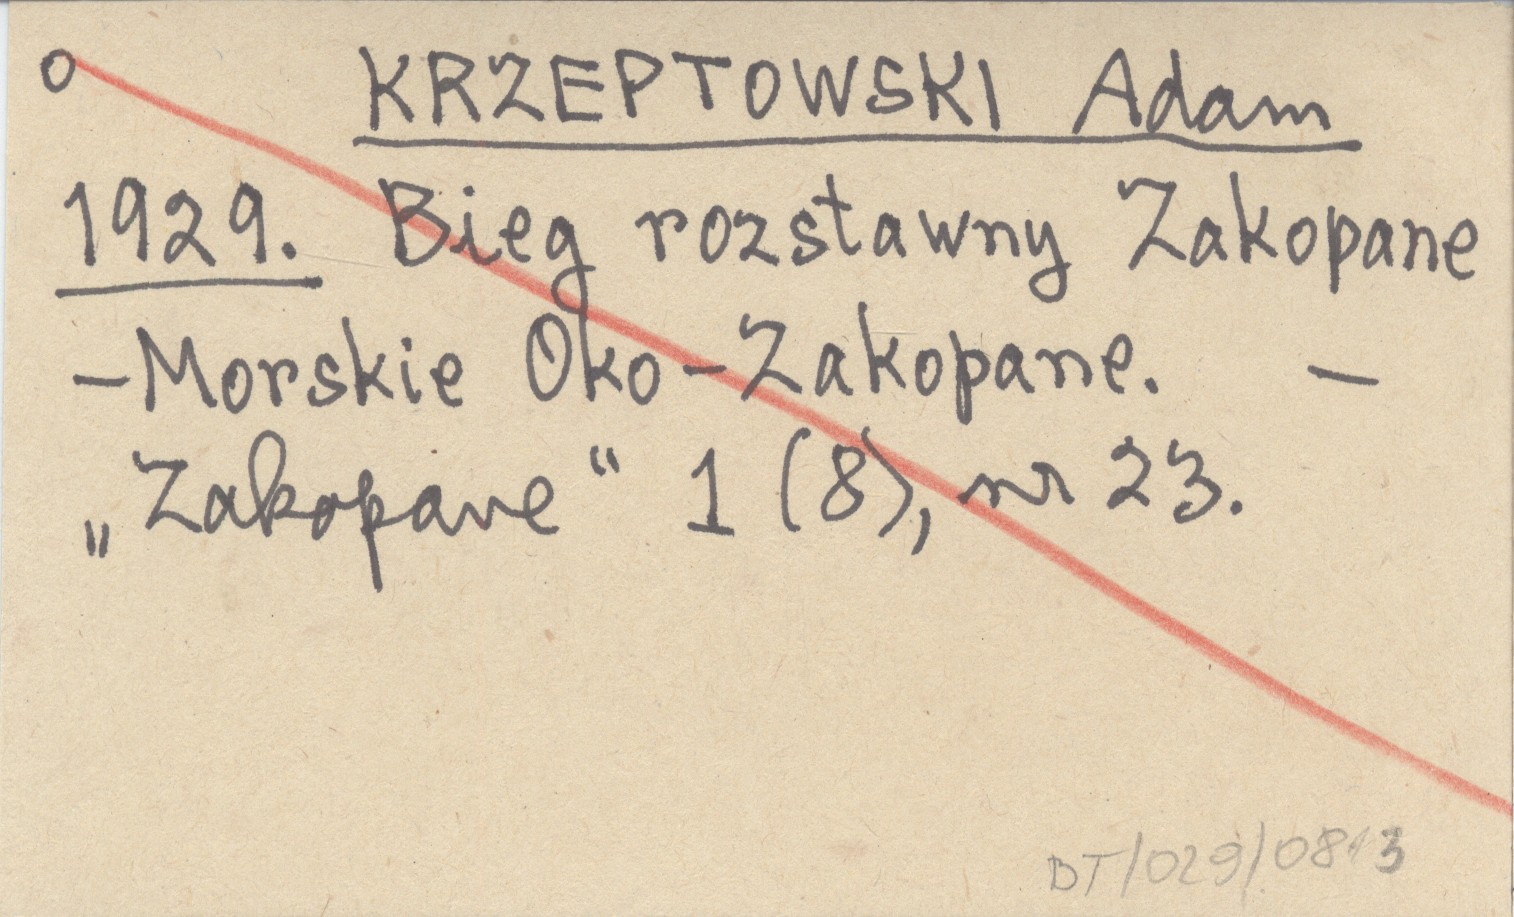 o KRZEPTOWSKI Adam
1929. Bieg rozstawny Zakopane
– Morskie Oko – Zakopane. –
„Zakopane“ 1 (8), nr 23.
BT/029/0813